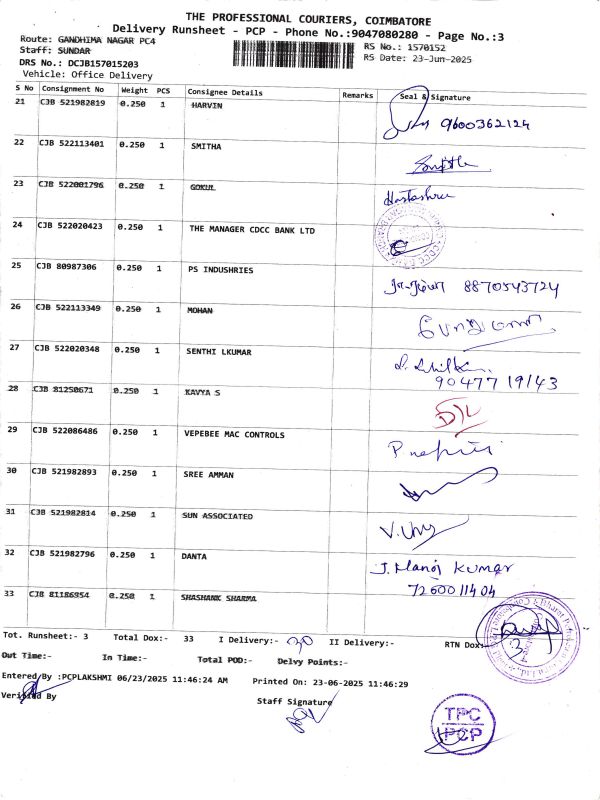 THE PROFESSIONAL COURIERS, COIMBATORE
Delivery Runsheet - PCP - Phone No.:9047080280 - Page No.:3
Route: GANDHIMA NAGAR PC4
RS No.: 1570152
Staff: SUNDAR
RS Date: 23-Jun-2025
DRS No.: DCJB157015203
Vehicle: Office Delivery
S No Consignment No Weight PCS Consignee Details Remarks Seal & Signature
21 CJB 521982819 0.250 1 HARVIN 9600362124
22 CJB 522113401 0.250 1 SMITHA
23 CJB 522001796 0.250 1 GOKUL
24 CJB 522020423 0.250 1 THE MANAGER CDCC BANK LTD
25 CJB 80987306 0.250 1 PS INDUSHRIES 8870543724
26 CJB 522113349 0.250 1 MOHAN
27 CJB 522020348 0.250 1 SENTHI LKUMAR
90477 19143
28 CJB 81250671 0.250 1 KAVYA S
29 CJB 522086486 0.250 1 VEPEBEE MAC CONTROLS
30 CJB 521982893 0.250 1 SREE AMMAN
31 CJB 521982814 0.250 1 SUN ASSOCIATED
32 CJB 521982796 0.250 1 DANTA J. Manoj Kumar
7260011404
33 CJB 81186954 0.250 1 SHASHANK SHARMA
Tot. Runsheet:- 3 Total Dox:- 33 I Delivery:- II Delivery:- RTN Dox:- 3
Out Time:- In Time:- Total POD:- Delvy Points:-
Entered By :PCPLAKSHMI 06/23/2025 11:46:24 AM Printed On: 23-06-2025 11:46:29
Verified By
Staff Signature
TPC
PCP